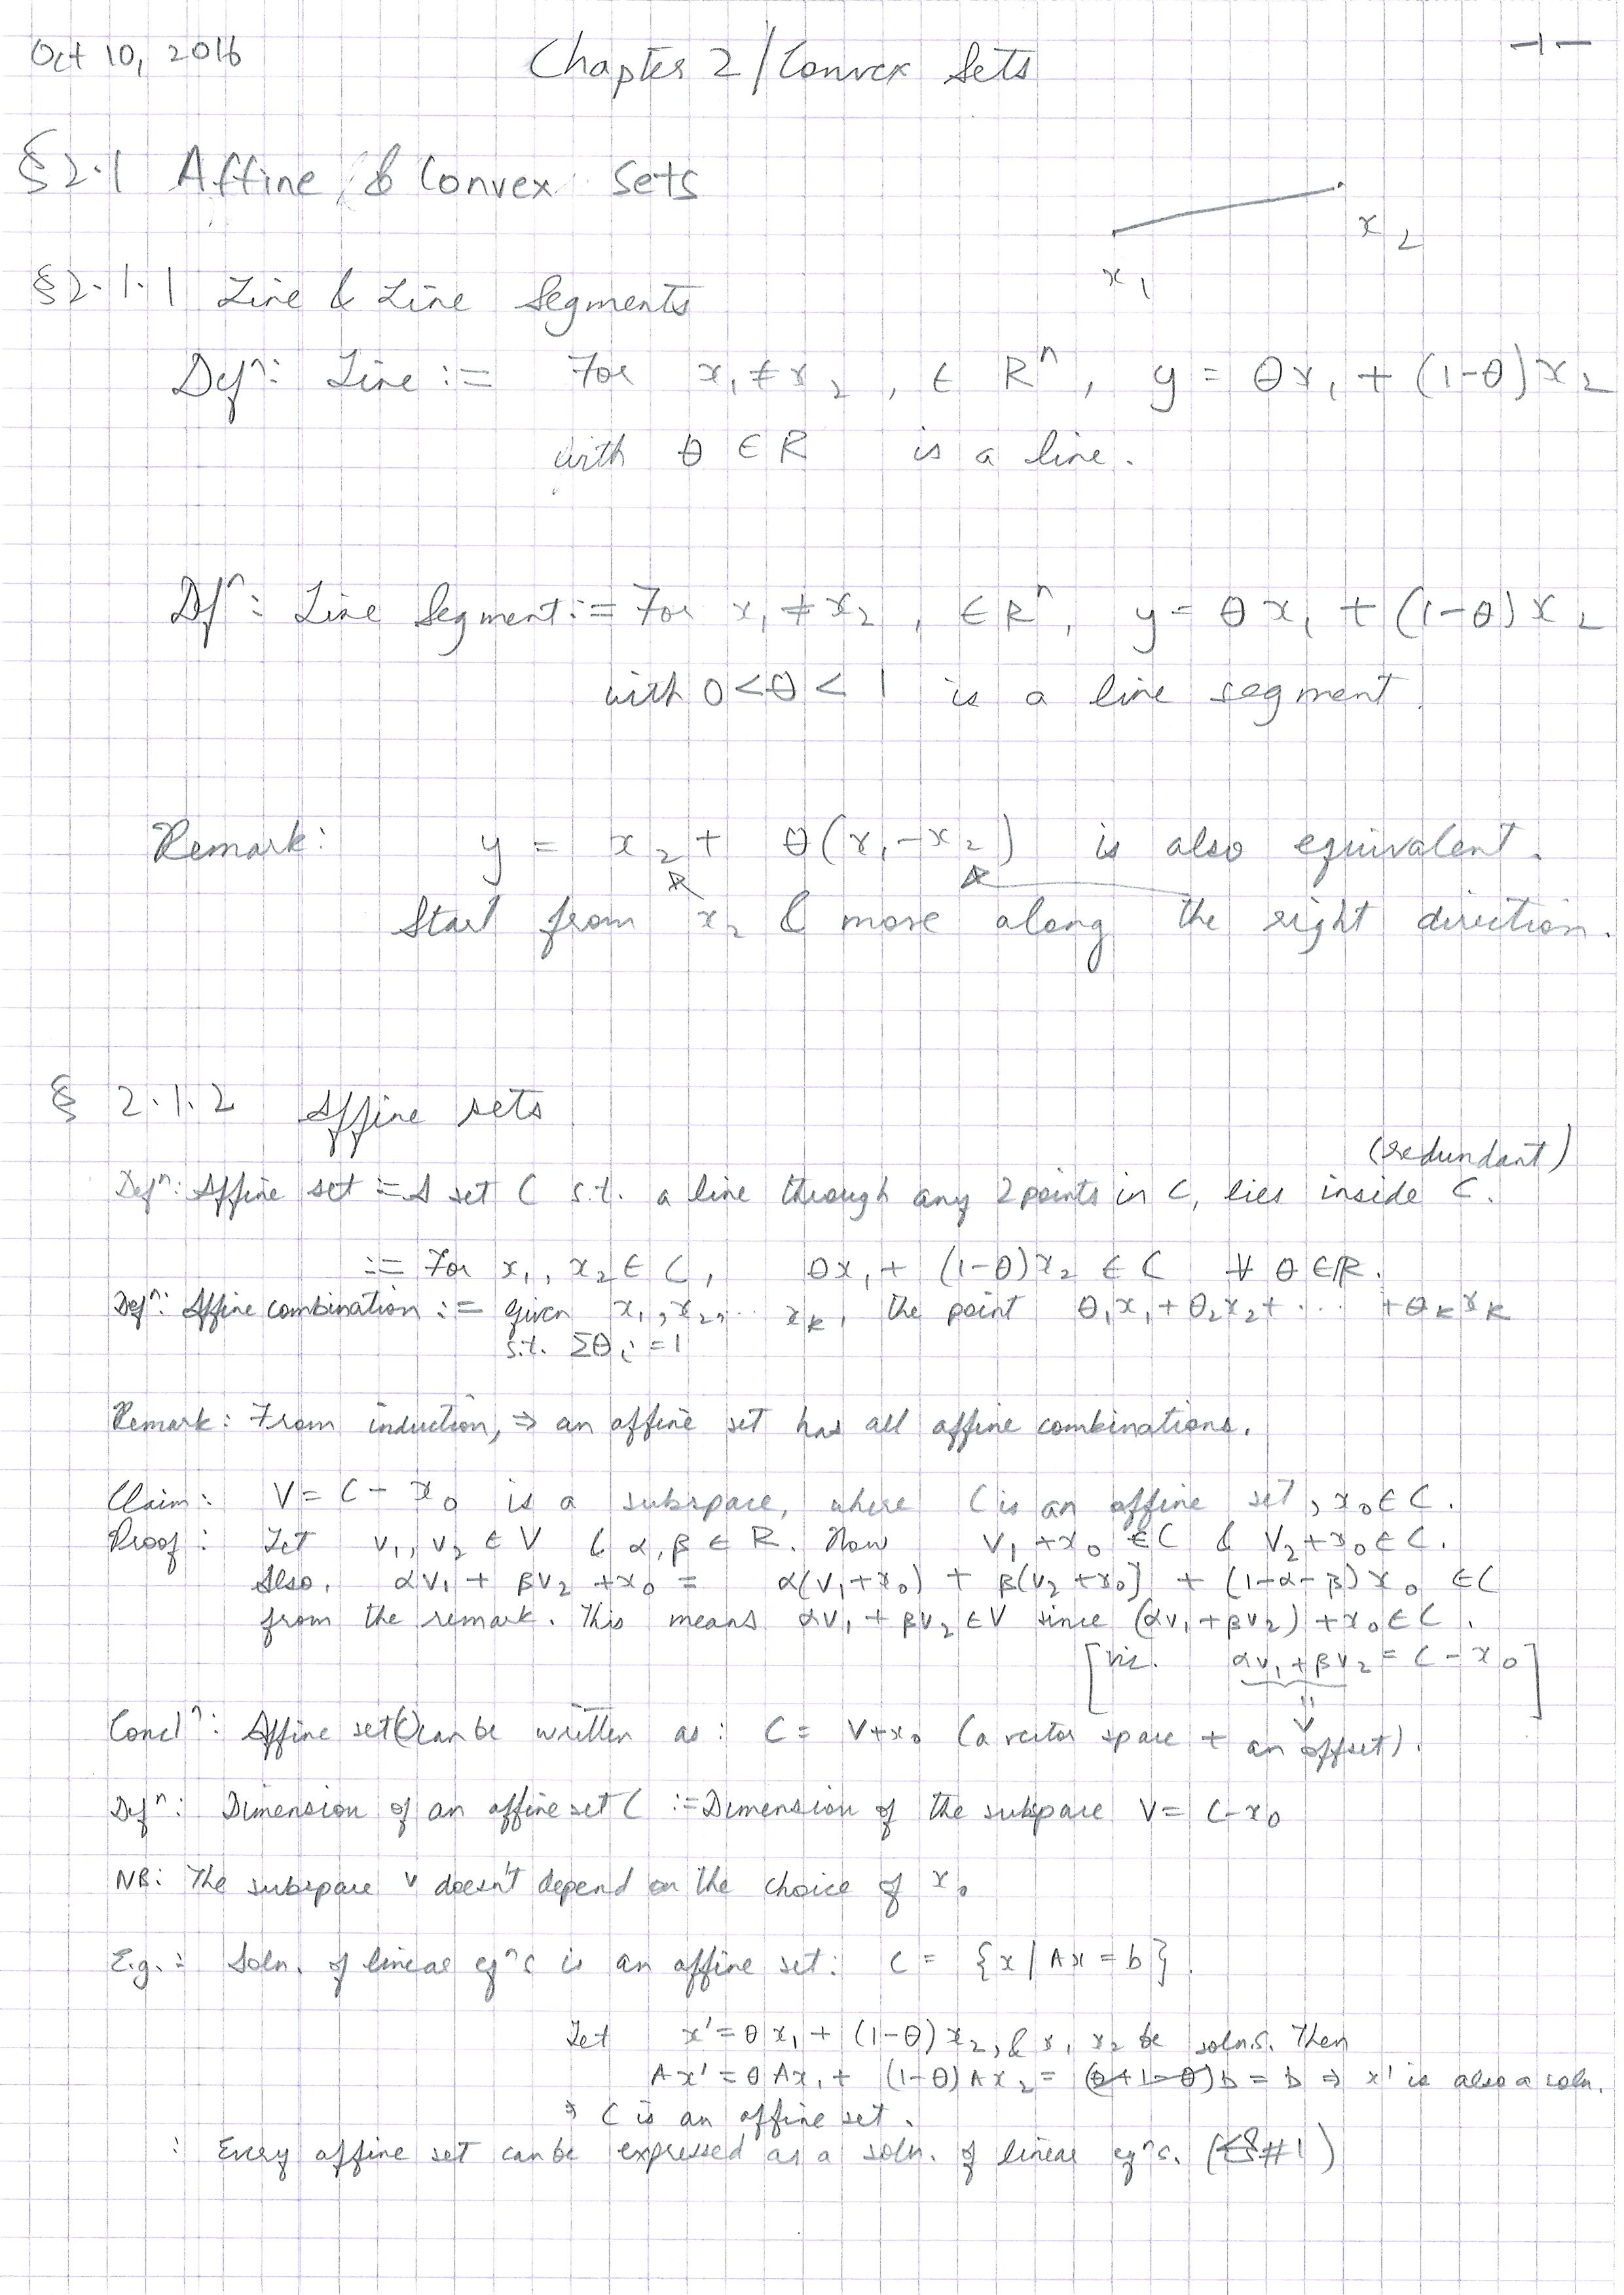 Oct 10, 2016
Chapter 2 / Convex Sets
-1-
§2.1 Affine & Convex Sets
x₁ x₂
§2.1.1 Line & Line Segments
Defⁿ: Line := For x₁ ≠ x₂, ∈ Rⁿ, y = θx₁ + (1-θ)x₂
with θ ∈ R is a line.
Dfⁿ: Line Segment := For x₁ ≠ x₂, ∈ Rⁿ, y = θx₁ + (1-θ)x₂
with 0 < θ < 1 is a line segment.
Remark: y = x₂ + θ(x₁-x₂) is also equivalent.
Start from x₂ & move along the right direction.
§ 2.1.2 Affine sets
(redundant)
Defⁿ: Affine set := A set C s.t. a line through any 2 points in C, lies inside C.
:= For x₁, x₂ ∈ C, θx₁ + (1-θ)x₂ ∈ C ∀ θ ∈ R.
Defⁿ: Affine combination := given x₁, x₂, ... xₖ, the point θ₁x₁ + θ₂x₂ + ... + θₖxₖ
s.t. Σθᵢ = 1
Remark: From induction, ⇒ an affine set has all affine combinations.
Claim: V = C - x₀ is a subspace, where C is an affine set, x₀ ∈ C.
Proof: Let v₁, v₂ ∈ V & α, β ∈ R. Now v₁ + x₀ ∈ C & v₂ + x₀ ∈ C.
Also, αv₁ + βv₂ + x₀ = α(v₁ + x₀) + β(v₂ + x₀) + (1-α-β)x₀ ∈ C
from the remark. This means αv₁ + βv₂ ∈ V since (αv₁ + βv₂) + x₀ ∈ C.
[viz. αv₁ + βv₂ = C - x₀]
=
V
Conclⁿ: Affine set (C) can be written as: C = V + x₀ (a vector space + an offset).
Dfⁿ: Dimension of an affine set C := Dimension of the subspace V = C - x₀
NB: The subspace V doesn't depend on the choice of x₀
E.g.: Soln. of linear eqⁿs is an affine set: C = {x | Ax = b}.
Let x' = θx₁ + (1-θ)x₂, & x₁ x₂ be solns. Then
Ax' = θAx₁ + (1-θ)Ax₂ = (θ+1-θ)b = b ⇒ x' is also a soln.
⇒ C is an affine set.
: Every affine set can be expressed as a soln. of linear eqⁿs. (#1)